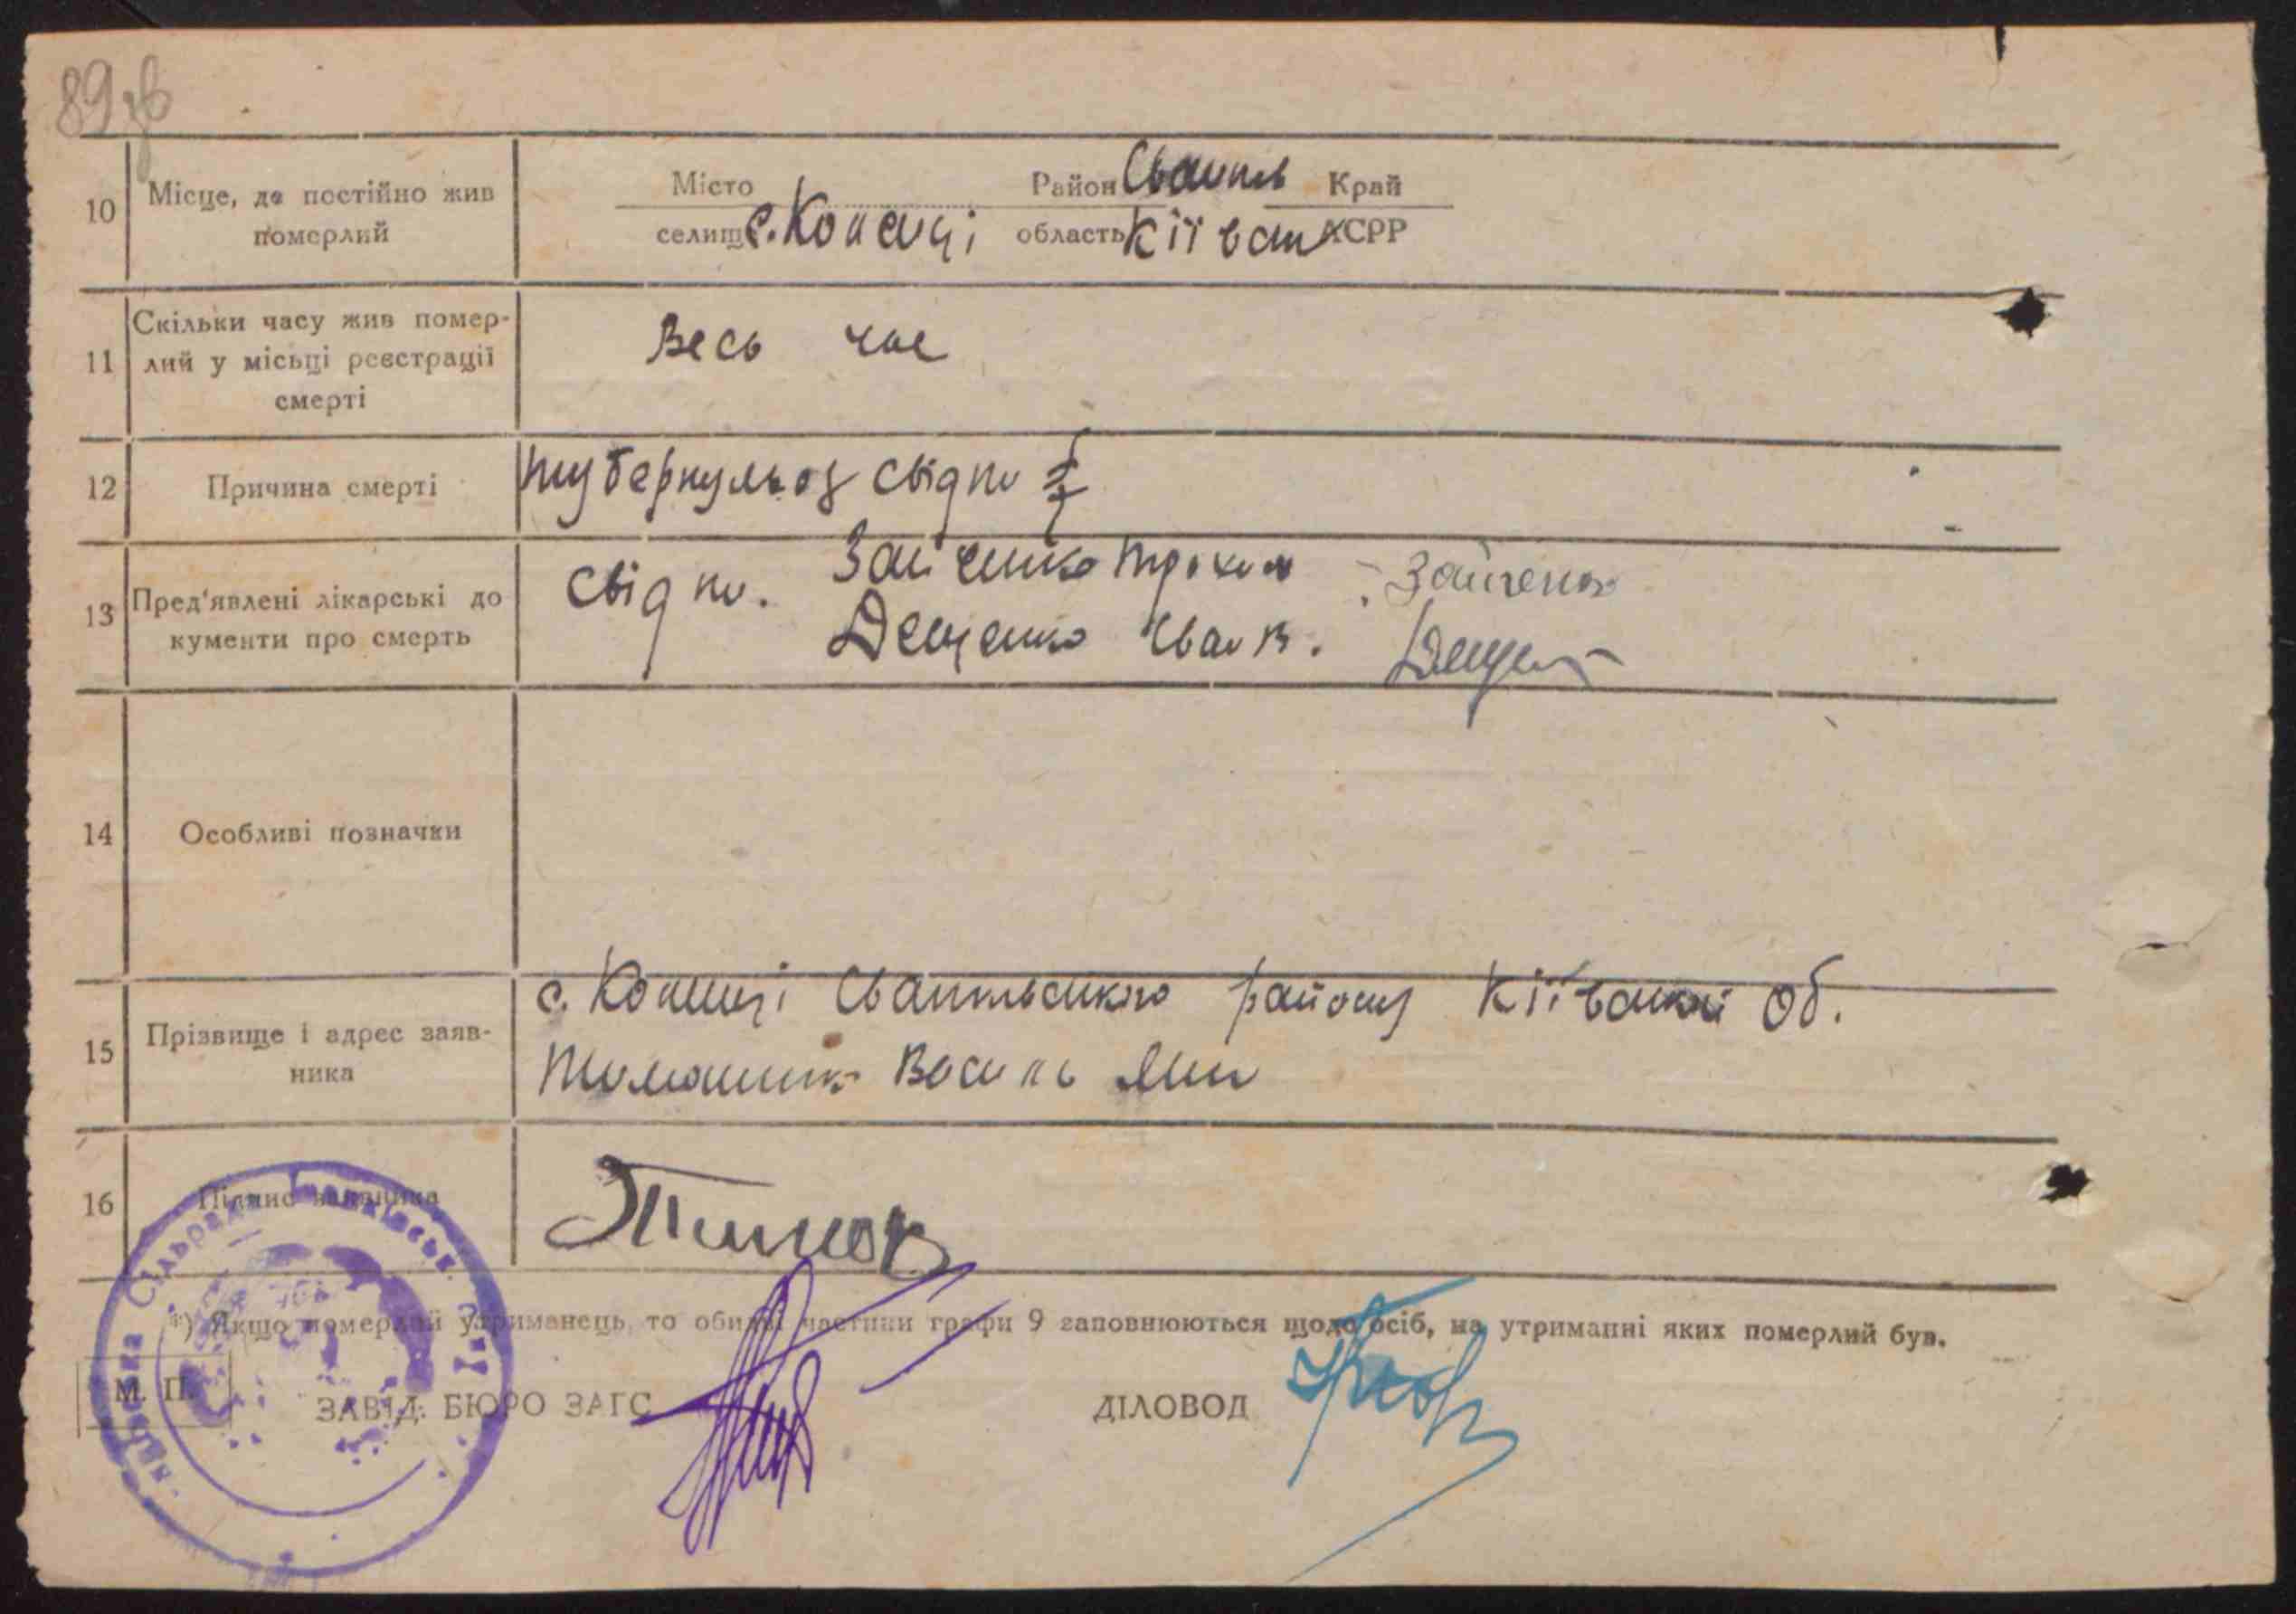 89зв
10 Місце, де постійно жив померлий
Місто Район Іванків Край
селищ с. Копачі область Кіївськ АСРР
11 Скільки часу жив помер-
лий у місьці реєстрації
смерті
Весь час
12 Причина смерті
туберкульоз свідки
13 Пред'явлені лікарські до
кументи про смерть
свідки. Зайченко Трохим Зайченко
Дещенко Іван. Дещен
14 Особливі позначки
15 Прізвище і адрес заяв-
ника
с. Копачі Іванківського району Кіївської Об.
Василь
16 Підпис заявника
Сільрада Іванківськ.
*) Якщо померлий утриманець, то обидві частини графи 9 заповнюються щодо осіб, на утриманні яких померлий був.
М. П. ЗАВІД. БЮРО ЗАГС ДІЛОВОД